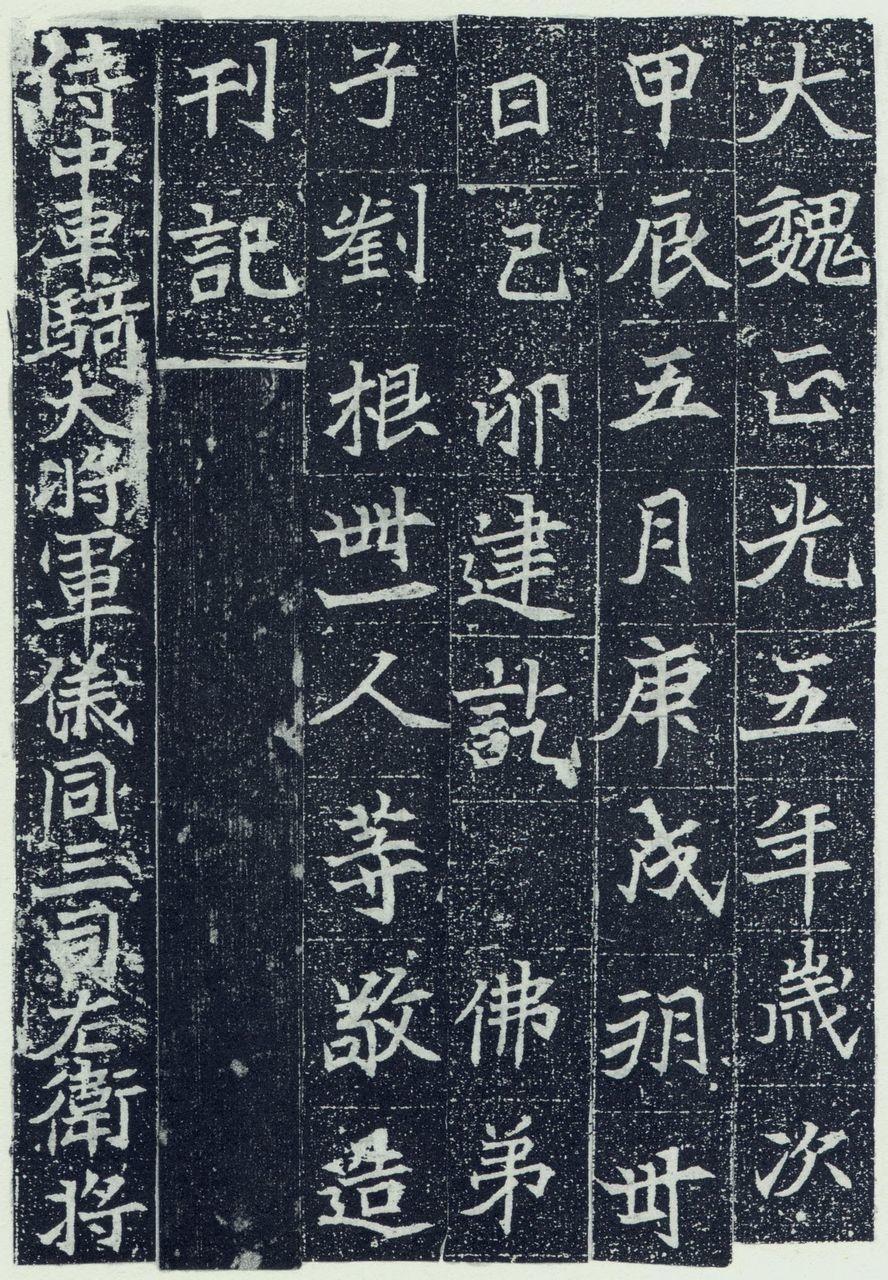 大魏正光五年歲次
甲辰五月庚戌朔卅
日己卯建訖　佛弟
子劉根卌一人等敬造
刊記
侍中車騎大將軍儀同三司左衛將